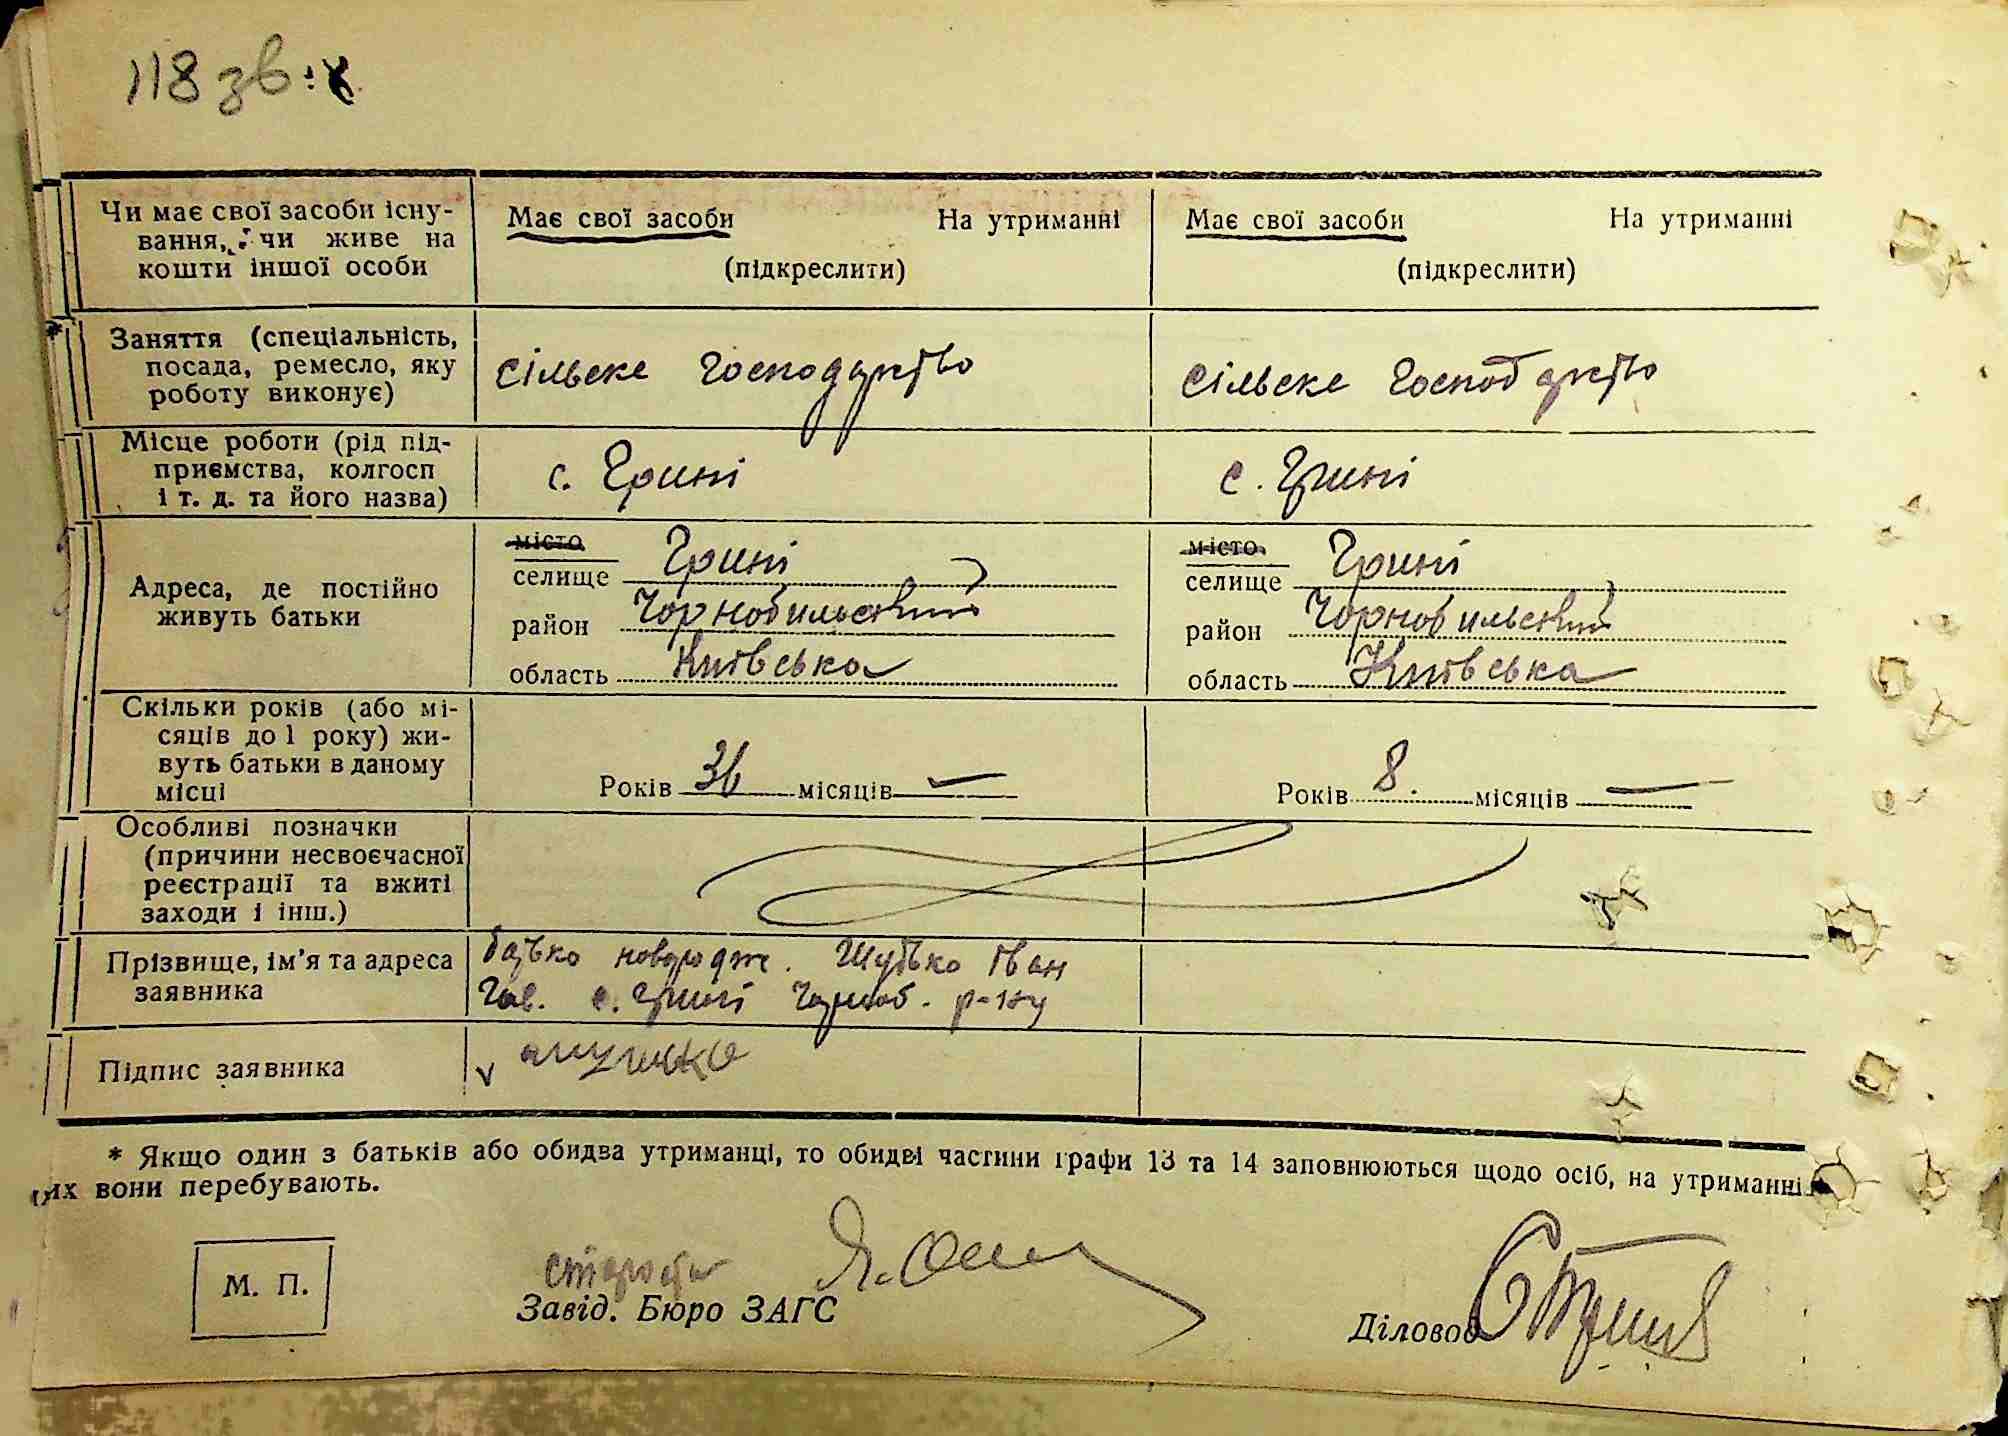 118 зв.
Чи має свої засоби існу-
вання, чи живе на
кошти іншої особи
Має свої засоби На утриманні
(підкреслити)
Має свої засоби На утриманні
(підкреслити)
* Заняття (спеціальність,
посада, ремесло, яку
роботу виконує)
сільске господарство
сільске господарство
Місце роботи (рід під-
приємства, колгосп
і т. д. та його назва)
с. Грині
с. Грині
Адреса, де постійно
живуть батьки
місто
селище Грині
район Чорнобильський
область Київська
місто
селище Грині
район Чорнобильський
область Київська
Скільки років (або мі-
сяців до 1 року) жи-
вуть батьки в даному
місці
Років 36 місяців —
Років 8. місяців —
Особливі позначки
(причини несвоєчасної
реєстрації та вжиті
заходи і інш.)
Прізвище, ім'я та адреса
заявника
батько новородж. Іван
Гав. с. Грині Чорноб. р-ну
Підпис заявника
* Якщо один з батьків або обидва утриманці, то обидві частини графи 13 та 14 заповнюються щодо осіб, на утриманні
их вони перебувають.
М. П.
староста
Завід. Бюро ЗАГС
Діловод